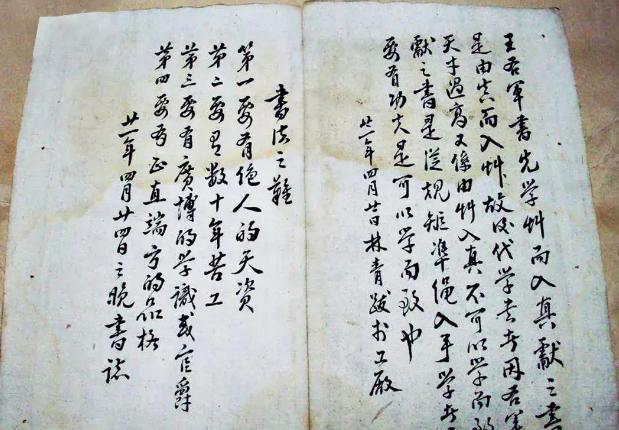 王右军書先学艸而入真獻之書
是由真而入艸故後代学者专用右軍
天才過高又係由艸入真不可以学而致
獻之書是從規矩準绳入手学者
要有功夫是可以学而致也
廿一年四月廿日林青跋於工厰
書法之難
第一要有绝人的天資
第二要有数十年苦工
第三要有廣博的学識或官爵
第四要有正直端方的品格
廿一年四月廿四日之晚書誌